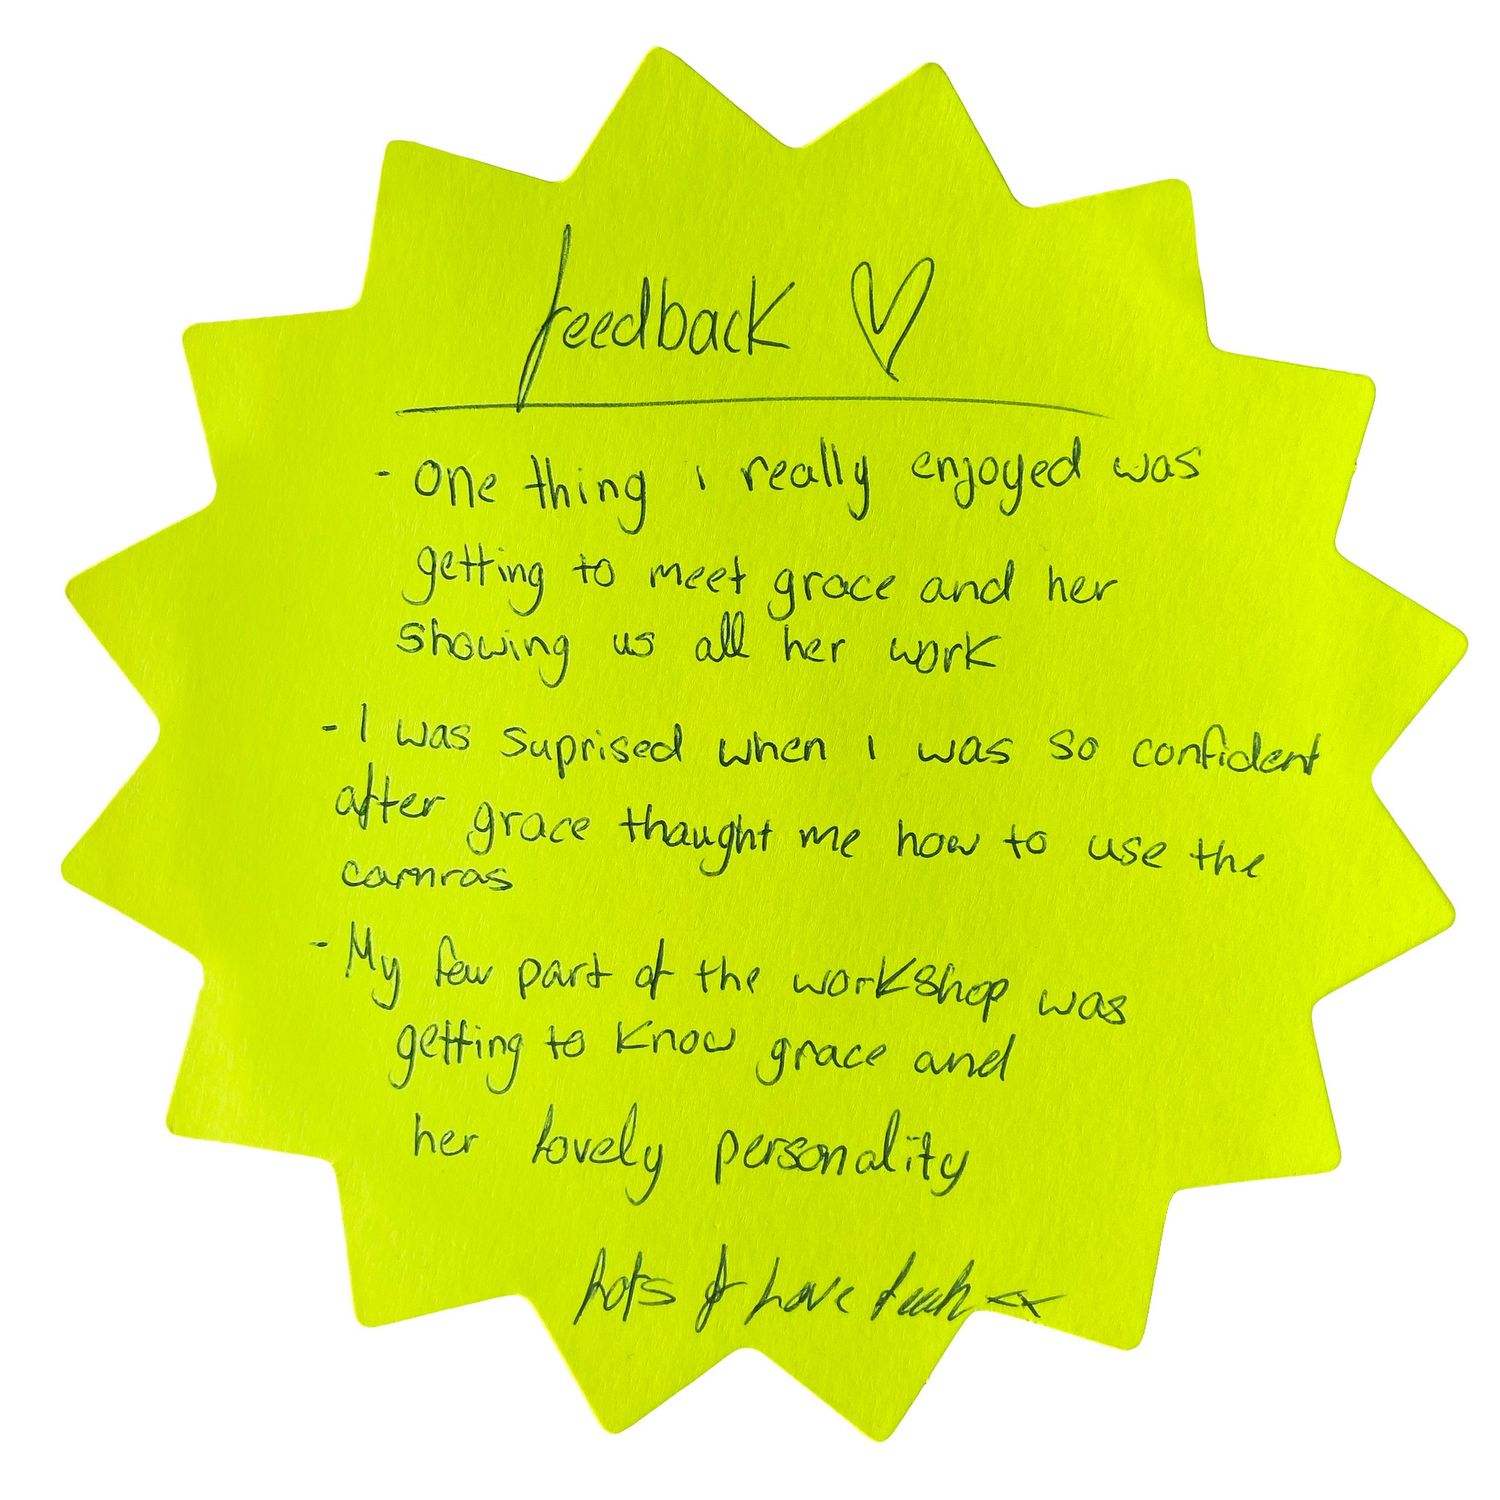 feedback ♡
- One thing i really enjoyed was
getting to meet grace and her
showing us all her work
- I was suprised when I was so confident
after grace thaught me how to use the
camras
- My few part of the workshop was
getting to know grace and
her lovely personality
Lots of Love xx